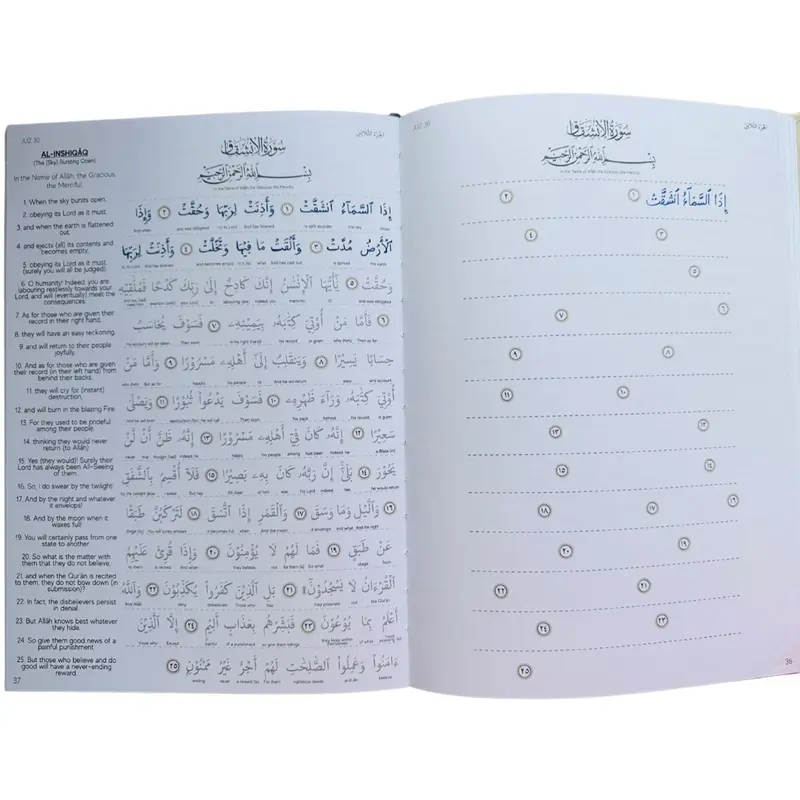 JUZ 30
الجزء الثلاثون
AL-INSHIQĀQ
(The (Sky) Bursting Open)
In the Name of Allāh, the Gracious,
the Merciful.
1. When the sky bursts open.
2. obeying its Lord as it must.
3. and when the earth is flattened
out.
4. and ejects (all) its contents and
becomes empty,
5. obeying its Lord as it must.
(surely you will all be judged).
6. O humanity! Indeed, you are
labouring restlessly towards your
Lord, and will (eventually) meet the
consequences.
7. As for those who are given their
record in their right hand,
8. they will have an easy reckoning,
9. and will return to their people
joyfully.
10. And as for those who are given
their record (in their left hand) from
behind their backs.
11. they will cry for (instant)
destruction,
12. and will burn in the blazing Fire
13. For they used to be prideful
among their people.
14. thinking they would never
return (to Allāh)
15. Yes (they would)! Surely their
Lord has always been All-Seeing
of them.
16. So, I do swear by the twilight!
17. And by the night and whatever
it envelops!
18. And by the moon when it
waxes full!
19. You will certainly pass from one
state to another
20. So what is the matter with
them that they do not believe,
21. and when the Qur'ān is recited
to them, they do not bow down (in
submission)?
22. In fact, the disbelievers persist
in denial.
23. But Allāh knows best whatever
they hide.
24. So give them good news of a
painful punishment.
25. But those who believe and do
good will have a never-ending
reward.
37
سُورَةُ الِانْشِقَاقِ
بِسْمِ اللَّهِ الرَّحْمَٰنِ الرَّحِيمِ
In the Name of Allah, the Gracious, the Merciful
إِذَا ٱلسَّمَآءُ ٱنشَقَّتْ ١ وَأَذِنَتْ لِرَبِّهَا وَحُقَّتْ ٢ وَإِذَا
ٱلْأَرْضُ مُدَّتْ ٣ وَأَلْقَتْ مَا فِيهَا وَتَخَلَّتْ ٤ وَأَذِنَتْ لِرَبِّهَا
وَحُقَّتْ ٥ يَٰٓأَيُّهَا ٱلْإِنسَٰنُ إِنَّكَ كَادِحٌ إِلَىٰ رَبِّكَ كَدْحًا فَمُلَٰقِيهِ
٦ فَأَمَّا مَنْ أُوتِىَ كِتَٰبَهُۥ بِيَمِينِهِۦ ٧ فَسَوْفَ يُحَاسَبُ
حِسَابًا يَسِيرًا ٨ وَيَنقَلِبُ إِلَىٰٓ أَهْلِهِۦ مَسْرُورًا ٩ وَأَمَّا مَنْ
أُوتِىَ كِتَٰبَهُۥ وَرَآءَ ظَهْرِهِۦ ١٠ فَسَوْفَ يَدْعُوا۟ ثُبُورًا ١١ وَيَصْلَىٰ
سَعِيرًا ١٢ إِنَّهُۥ كَانَ فِىٓ أَهْلِهِۦ مَسْرُورًا ١٣ إِنَّهُۥ ظَنَّ أَن لَّن
يَحُورَ ١٤ بَلَىٰٓ إِنَّ رَبَّهُۥ كَانَ بِهِۦ بَصِيرًا ١٥ فَلَآ أُقْسِمُ بِٱلشَّفَقِ
١٦ وَٱلَّيْلِ وَمَا وَسَقَ ١٧ وَٱلْقَمَرِ إِذَا ٱتَّسَقَ ١٨ لَتَرْكَبُنَّ طَبَقًا
عَن طَبَقٍ ١٩ فَمَا لَهُمْ لَا يُؤْمِنُونَ ٢٠ وَإِذَا قُرِئَ عَلَيْهِمُ
ٱلْقُرْءَانُ لَا يَسْجُدُونَ ٢١ بَلِ ٱلَّذِينَ كَفَرُوا۟ يُكَذِّبُونَ ٢٢ وَٱللَّهُ
أَعْلَمُ بِمَا يُوعُونَ ٢٣ فَبَشِّرْهُم بِعَذَابٍ أَلِيمٍ ٢٤ إِلَّا ٱلَّذِينَ
ءَامَنُوا۟ وَعَمِلُوا۟ ٱلصَّٰلِحَٰتِ لَهُمْ أَجْرٌ غَيْرُ مَمْنُونٍ ٢٥
JUZ 30
الجزء الثلاثون
سُورَةُ الِانْشِقَاقِ
بِسْمِ اللَّهِ الرَّحْمَٰنِ الرَّحِيمِ
In the Name of Allah, the Gracious, the Merciful
إِذَا ٱلسَّمَآءُ ٱنشَقَّتْ ١ ٢
٣ ٤
٥
٦ ٧
٨ ٩
١٠ ١١
١٢ ١٣
١٤ ١٥
١٦ ١٧ ١٨
١٩ ٢٠
٢١ ٢٢
٢٣ ٢٤
٢٥
36